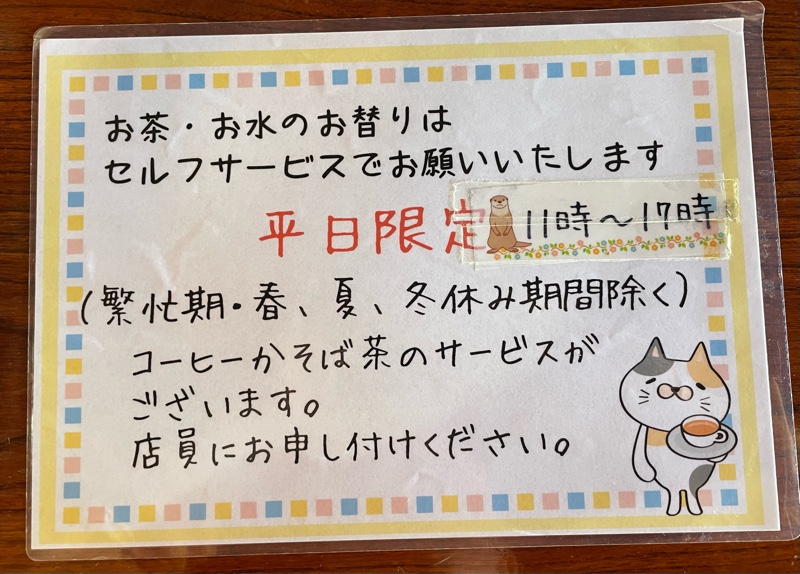 お茶・お水のお替りは
セルフサービスでお願いいたします
平日限定 11時～17時
(繁忙期・春、夏、冬休み期間除く)
コーヒーかそば茶のサービスが
ございます。
店員にお申し付けください。